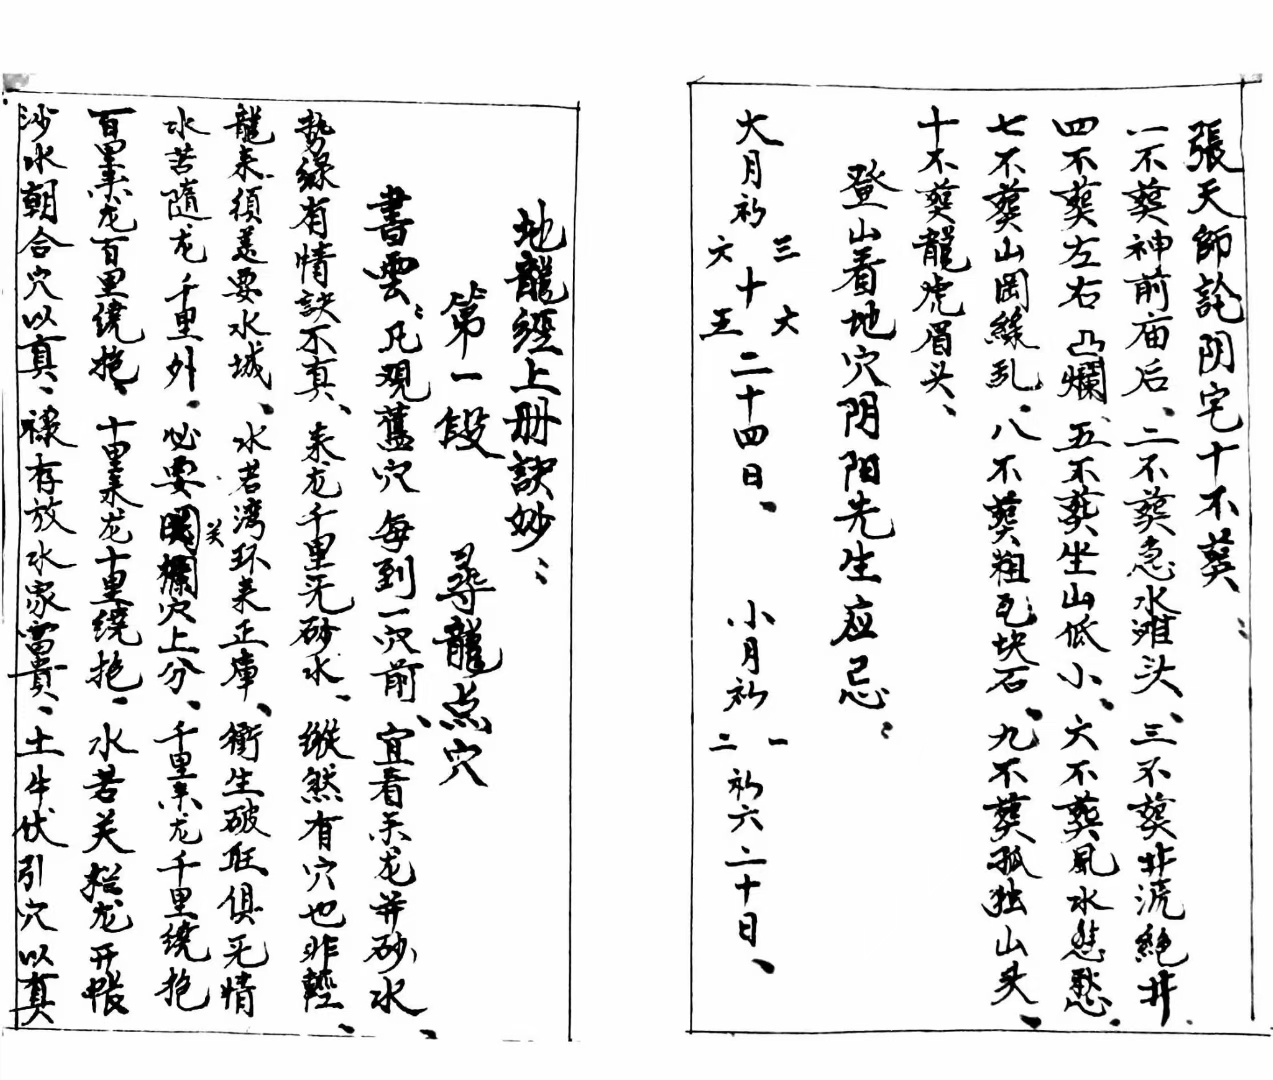 張天師論阴宅十不葬：
一不葬神前庙后、二不葬急水滩头、三不葬井流絕井、
四不葬左右凸爛、五不葬坐山低小、六不葬風水愁愁、
七不葬山岡繚乱、八不葬粗瓦块石、九不葬孤独山头、
十不葬龍虎眉头、
登山看地穴阴阳先生应忌：
大月初三六十六五二十四日、 小月初一二初六二十日、
地龍經上册訣妙：
第一段 尋龍点穴
書雲：凡观舊穴每到一穴前、宜看来龙并砂水、
势缘有情訣不真、来龙千里无砂水、縱然有穴也非輕、
龍来須羡要水城、水若湾环来正庫、衝生破旺俱无情
水苦隨龙千里外、必要関攔穴上分、千里来龙千里绕抱
关
百里来龙百里绕抱、十里来龙十里绕抱、水若关拦龙开帳
沙水朝合穴以真、禄存放水家富貴、土牛伏引穴以真